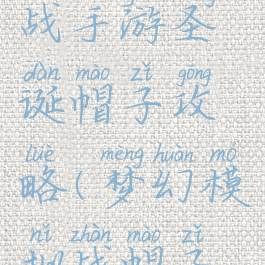 战手游圣
dàn mào zǐ gōng
诞帽子攻
lüè mèng huàn mó
略(梦幻模
nǐ zhàn mào zǐ
拟战帽子